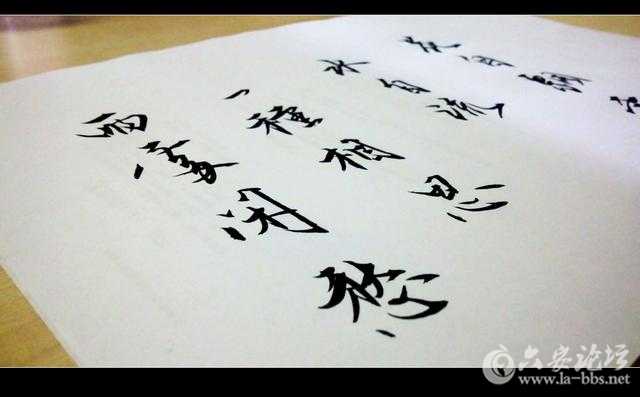 花自飄
水自流
一種相思
两處闲愁
六安论坛
www.la-bbs.net